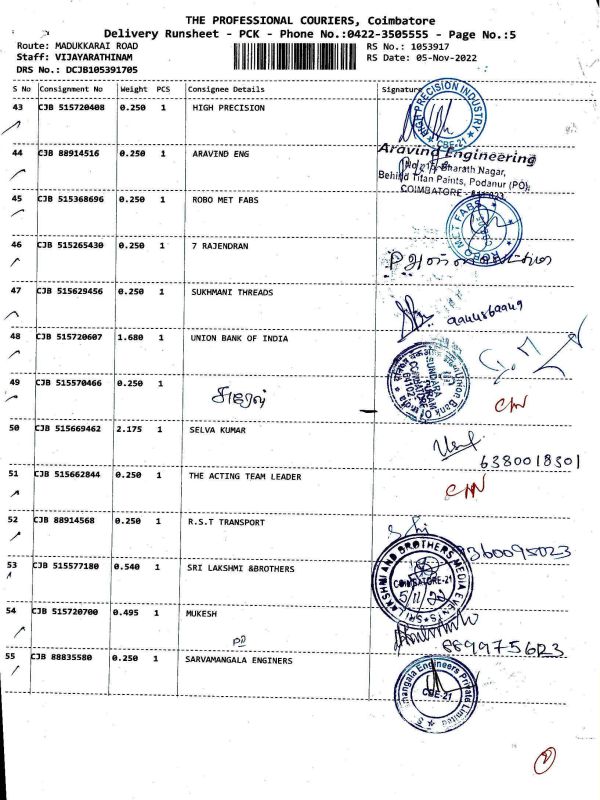 THE PROFESSIONAL COURIERS, Coimbatore
Delivery Runsheet - PCK - Phone No.:0422-3505555 - Page No.:5
Route: MADUKKARAI ROAD
RS No.: 1053917
Staff: VIJAYARATHINAM
RS Date: 05-Nov-2022
DRS No.: DCJB105391705
S No Consignment No Weight PCS Consignee Details Signature
43 CJB 515720408 0.250 1 HIGH PRECISION
HIGH PRECISION INDUSTRY CBE-21
44 CJB 88914516 0.250 1 ARAVIND ENG
Aravind Engineering
Bharath Nagar,
Behind Titan Paints, Podanur (PO),
COIMBATORE
45 CJB 515368696 0.250 1 ROBO MET FABS
ROBO MET FABS
46 CJB 515265430 0.250 1 7 RAJENDRAN
47 CJB 515629456 0.250 1 SUKHMANI THREADS
48 CJB 515720607 1.680 1 UNION BANK OF INDIA
Union Bank Of India
SUNDARA
PURAM
COIMBATORE
49 CJB 515570466 0.250 1
50 CJB 515669462 2.175 1 SELVA KUMAR
6380018501
51 CJB 515662844 0.250 1 THE ACTING TEAM LEADER
52 CJB 88914568 0.250 1 R.S.T TRANSPORT
9360095023
53 CJB 515577180 0.540 1 SRI LAKSHMI &BROTHERS
SRI LAKSHMI AND BROTHERS MEDIA EVENTS
COIMBATORE-21
5/11/22
54 CJB 515720700 0.495 1 MUKESH
8899975623
55 CJB 88835580 0.250 1 SARVAMANGALA ENGINERS
Engineers Private Limited
CBE-21